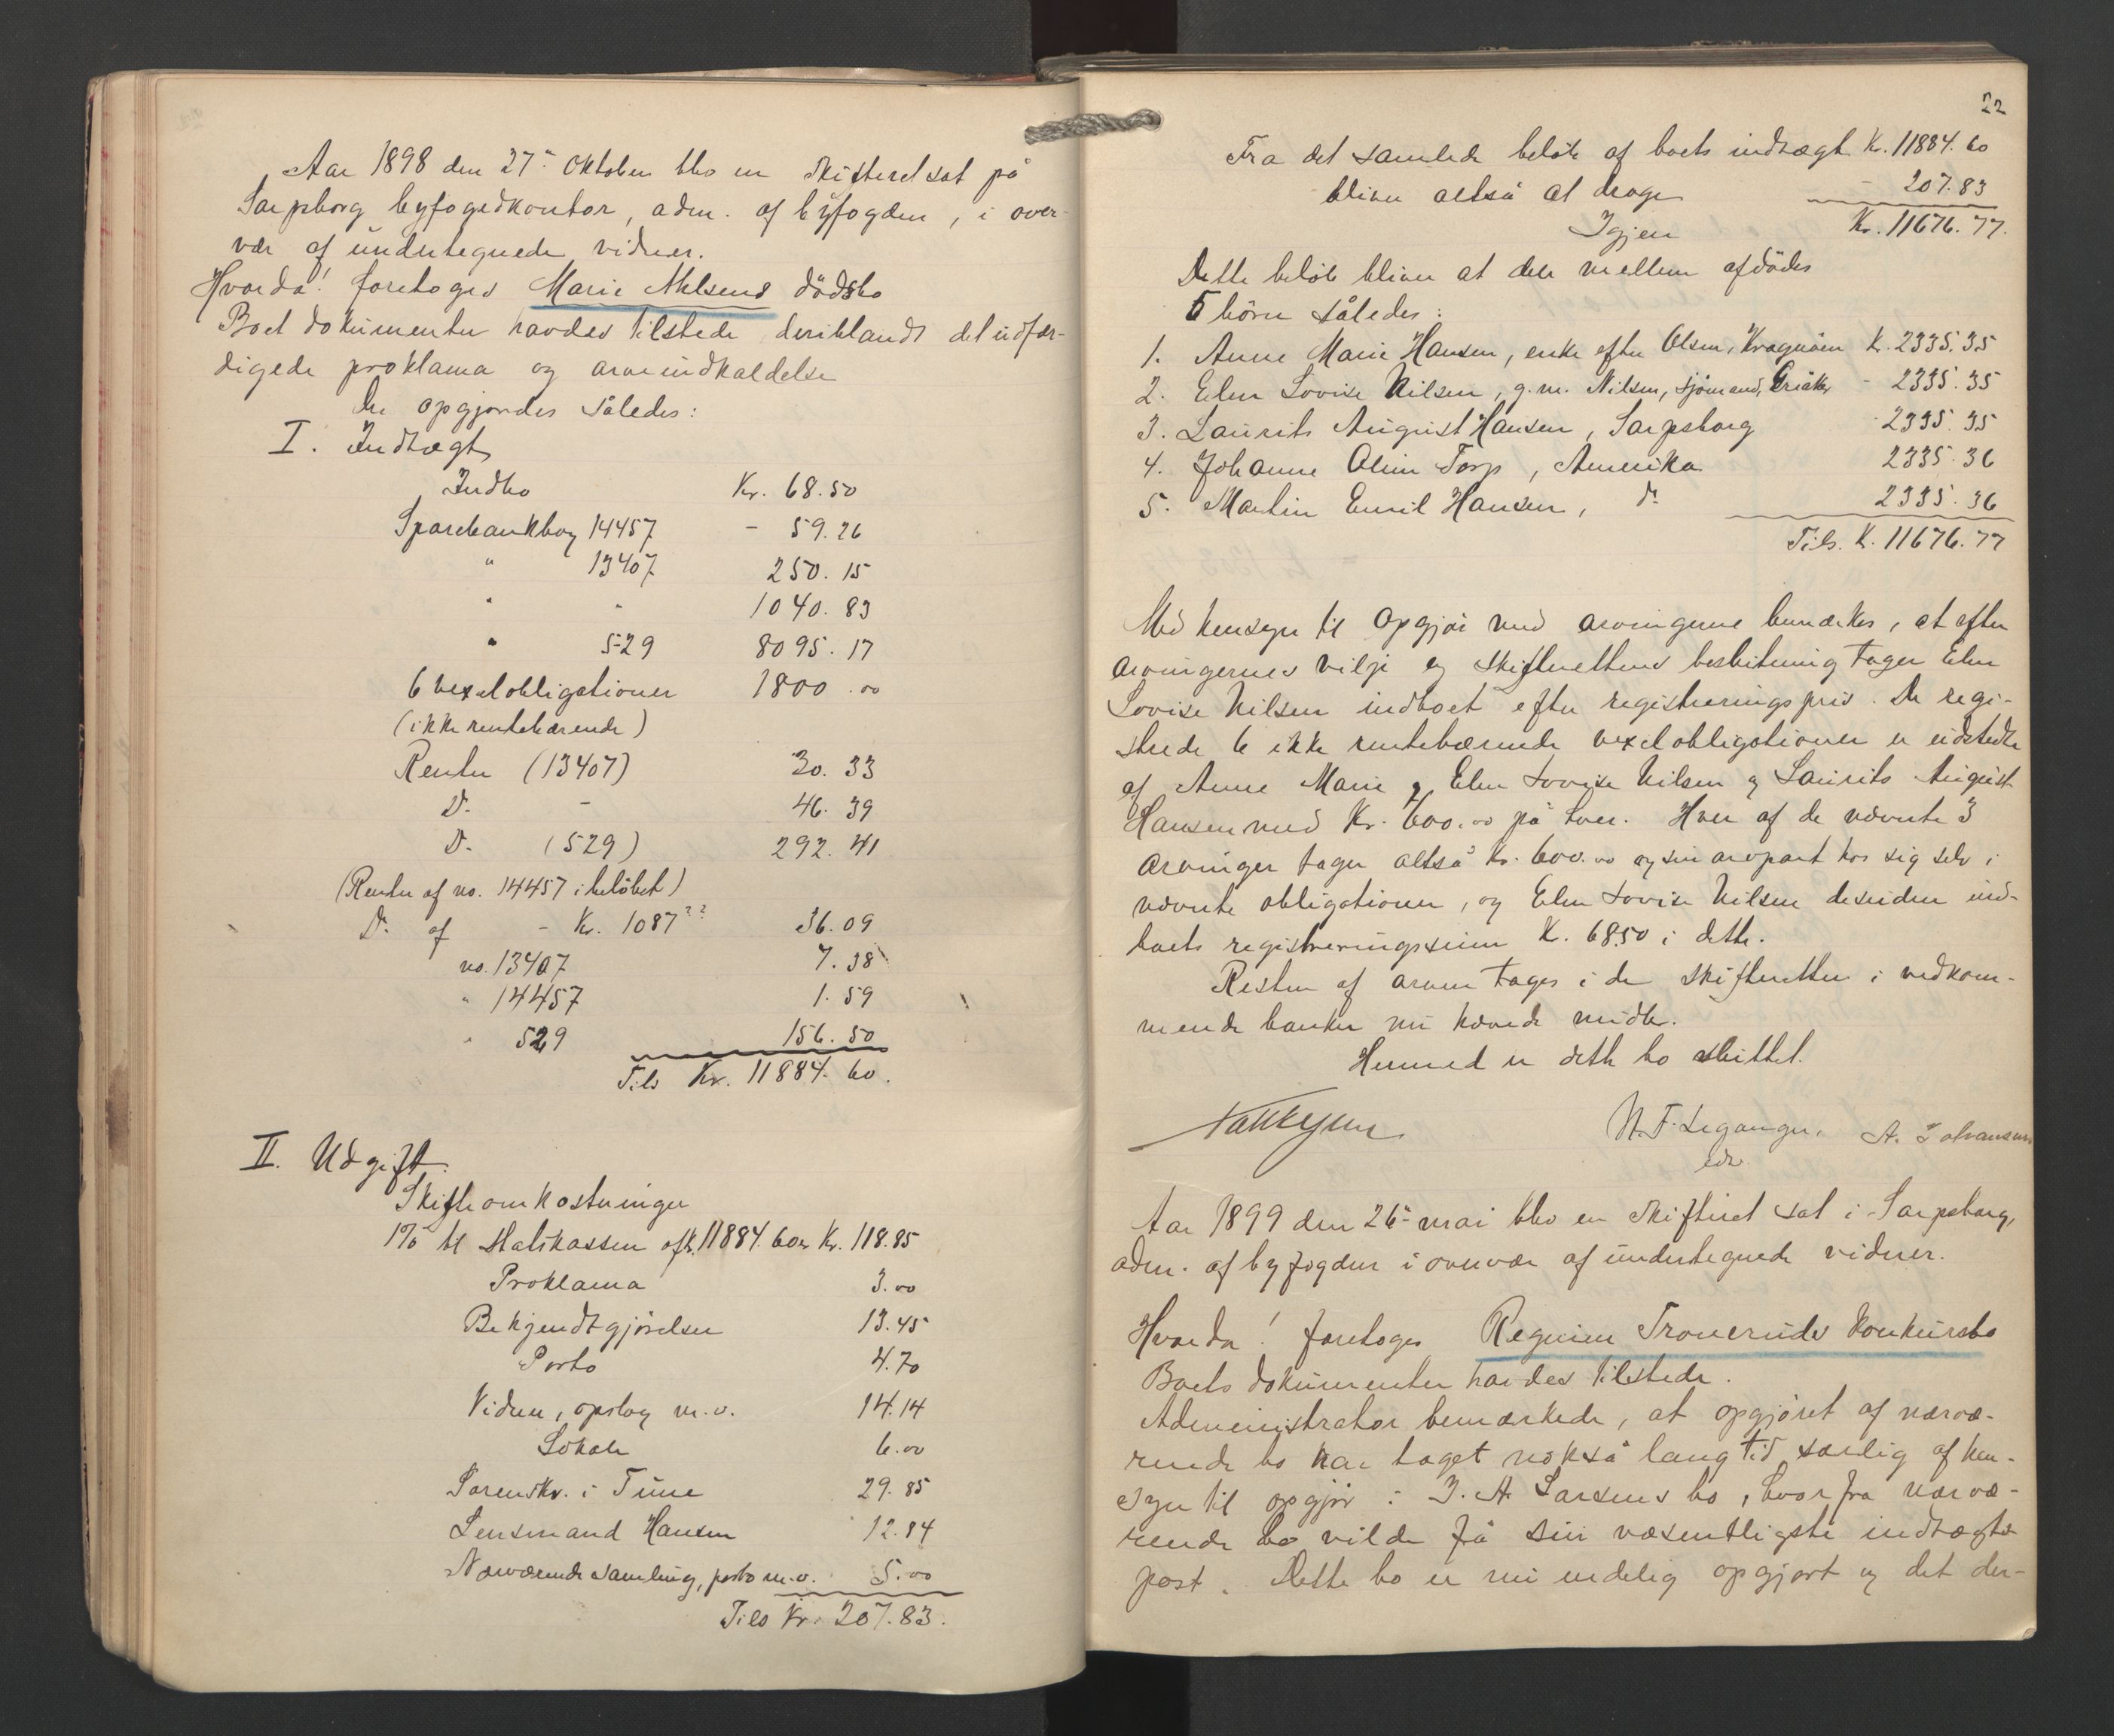 Aar 1898 den 27de Oktober blev en skifteret sat på
Sarpsborg byfogedkontor, adm. af byfogden, i over-
vær af undertegnede vidner.
Hvorda! foretoges Marie Nilsens dödsbo
Boet dokumenter havdes tilstede deriblandt det udfær-
digede proklama og arveindkaldelse
Der opgjordes således:
I. Indtægt
Indbo Kr. 68.50
Sparebankbog 14457 - 59.26
" 13407 250.15
" " 1040.83
" 529 8095.17
6 vexelobligationer 1800.00
(ikke rentebærende)
Renter (13407) 30.33
Do. - 46.39
Do. (529) 292.41
(Renter af no. 14457 i beløbet)
Do. af - Kr. 1087?? 36.09
no. 13407 7.38
" 14457 1.59
" 529 156.50
Tils Kr. 11884.60.
II. Udgift
Skifteomkostninger
1% til Statskassen af k. 11884.60 = Kr. 118.85
Proklama 3.00
Bekjendtgjörelser 13.45
Porto 4.70
Vidner, opslag m.v. 14.14
Lokale 6.00
Sorenskr. i Tune 29.85
Lensmand Hansen 12.84
Nærværende samling, porto m.v. 5.00
Tils Kr. 207.83.
22
Fra det samlede beløb af boets indtægt Kr. 11884.60
bliver altså at drage - 207.83
Igjen Kr. 11676.77.
Dette beløb bliver at dele mellem afdödes
5 börn således:
1. Anne Marie Hansen, enke efter Olsen, K. 2335.35
2. Elen Lovise Nilsen, g.m. Nilsen, sjömand, - 2335.35
3. Laurits August Hansen, Sarpsborg 2335.35
4. Johanne Olin Torp, Amerika 2335.36
5. Martin Emil Hansen, do. 2335.36
Tils. K. 11676.77
Med hensyn til opgjör med arvingerne bemærkes, at efter
arvingernes vilje og skifterettens beslutning tager Elen
Lovise Nilsen indboet efter registreringspris. De regi-
strede 6 ikke rentebærende vexelobligationer er udstedte
af Anne Marie og Elen Lovise Nilsen og Laurits August
Hansen med Kr. 600.00 på hver. Hver af de nævnte 3
arvinger tager altså Kr. 600.00 af sin arvepart hos sig selv i
nævnte obligationer, og Elen Lovise Nilsen desuden ind-
boets registreringssum K. 68.50 i dette.
Resten af arven tages i de skifteretten i vedkom-
mende banker nu hævede midler.
Hermed er dette bo sluttet.
N. F. Leganger. A. Johansen
edv.
Aar 1899 den 26de mai blev en skifteret sat i Sarpsborg,
adm. af byfogden i overvær af undertegnede vidner.
Hvorda! foretoges Regnine Troneruds konkursbo
Boets dokumenter havdes tilstede.
Administrator bemærkede, at opgjöret af nærvæ-
rende bo har taget nokså lang tid særlig af hen-
syn til opgjör i J. A. Larsens bo, hvorfra nærvæ-
rende bo vilde få sin væsentligste indtægts-
post. Dette bo er nu endelig opgjort og det der-